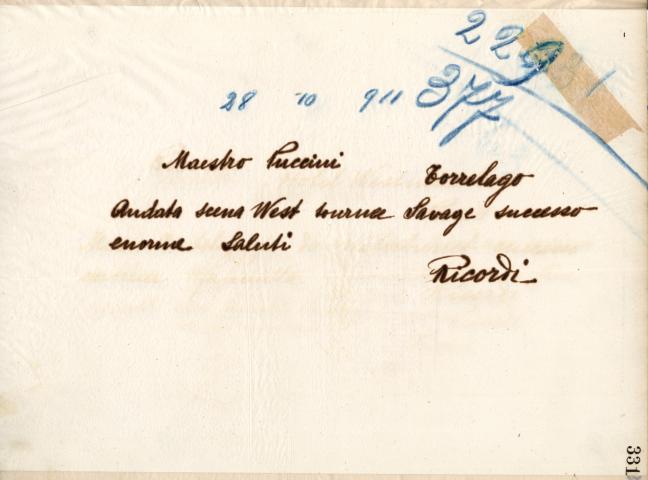 229
28 10 911 377
Maestro Puccini Torrelago
Andata scena West tournee Savage successo
enorme Saluti
Ricordi
331